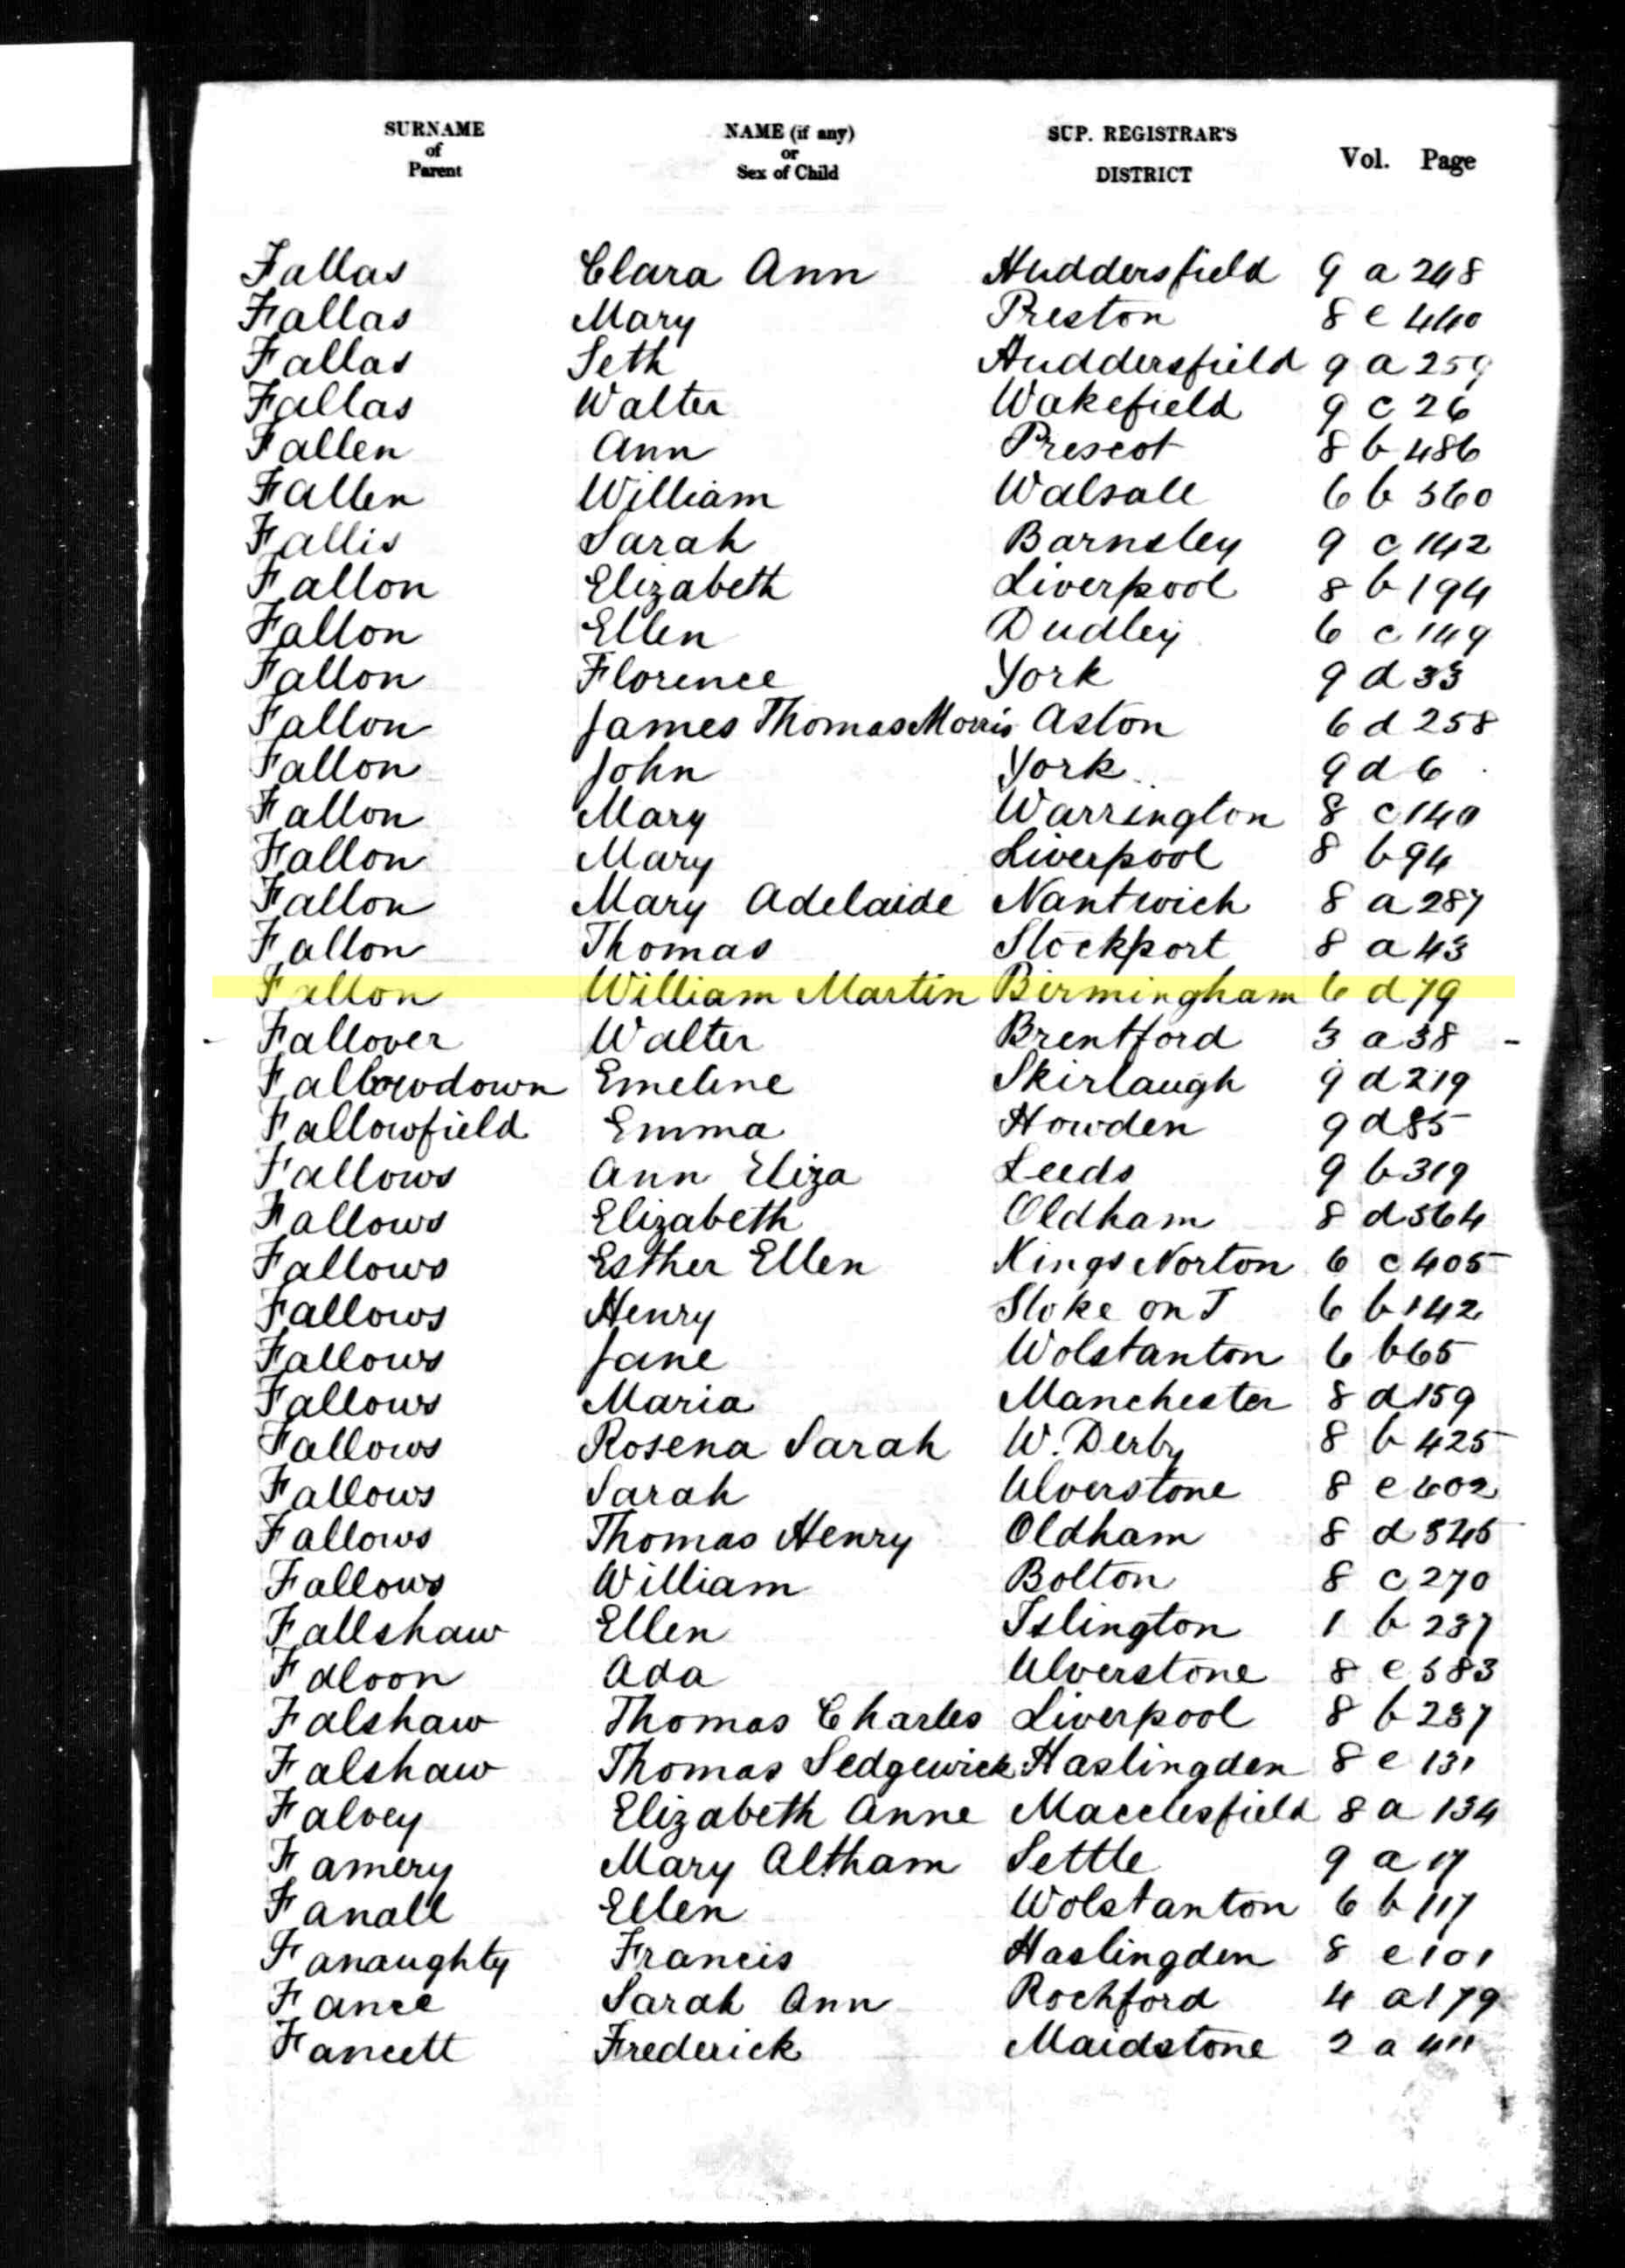 SURNAME of Parent NAME (if any) or Sex of Child SUP. REGISTRAR'S DISTRICT Vol. Page
Fallas Clara Ann Huddersfield 9 a 248
Fallas Mary Preston 8 e 440
Fallas Seth Huddersfield 9 a 259
Fallas Walter Wakefield 9 c 26
Fallen Ann Prescot 8 b 486
Fallen William Walsall 6 b 560
Fallis Sarah Barnsley 9 c 142
Fallon Elizabeth Liverpool 8 b 194
Fallon Ellen Dudley 6 c 149
Fallon Florence York 9 d 33
Fallon James Thomas Morris Aston 6 d 258
Fallon John York 9 d 6
Fallon Mary Warrington 8 c 140
Fallon Mary Liverpool 8 b 94
Fallon Mary Adelaide Nantwich 8 a 287
Fallon Thomas Stockport 8 a 43
Fallon William Martin Birmingham 6 d 79
Fallover Walter Brentford 3 a 38
Fallowdown Emeline Skirlaugh 9 d 219
Fallowfield Emma Howden 9 d 85
Fallows Ann Eliza Leeds 9 b 319
Fallows Elizabeth Oldham 8 d 564
Fallows Esther Ellen Kings Norton 6 c 405
Fallows Henry Stoke on T 6 b 142
Fallows Jane Wolstanton 6 b 65
Fallows Maria Manchester 8 d 159
Fallows Rosena Sarah W. Derby 8 b 425
Fallows Sarah Ulverstone 8 e 602
Fallows Thomas Henry Oldham 8 d 545
Fallows William Bolton 8 c 270
Fallshaw Ellen Islington 1 b 237
Fdloon Ada Ulverstone 8 e 583
Falshaw Thomas Charles Liverpool 8 b 237
Falshaw Thomas Sedgewick Haslingden 8 e 131
Falvey Elizabeth Anne Macclesfield 8 a 134
Famery Mary Altham Settle 9 a 17
Fanall Ellen Wolstanton 6 b 117
Fanaughty Francis Haslingden 8 e 101
Fance Sarah Ann Rochford 4 a 179
Fancett Frederick Maidstone 2 a 411